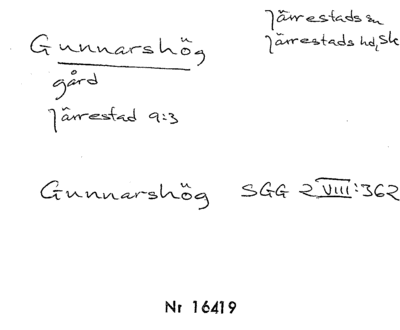 Gunnarshög
gård
Järrestad 9:3
Järrestads sn
Järrestads hd, Sk
Gunnarshög SGG 2 VIII:362
Nr 16419